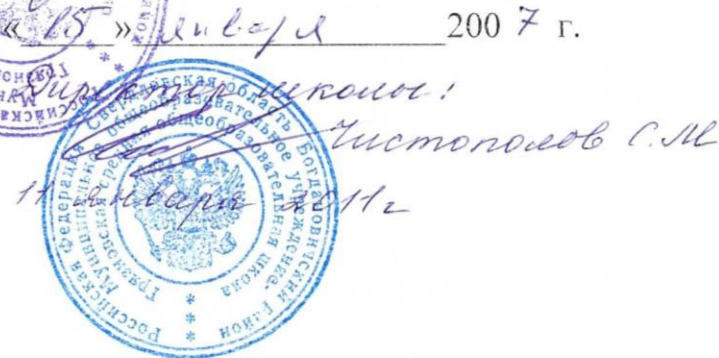 « 15 » января 2007 г.
Директор школы:
Чистополов С.М
11 января 2011г
Российская Федерация Свердловская область Богдановичский район
Муниципальное общеобразовательное учреждение-
Грязновская средняя общеобразовательная школа